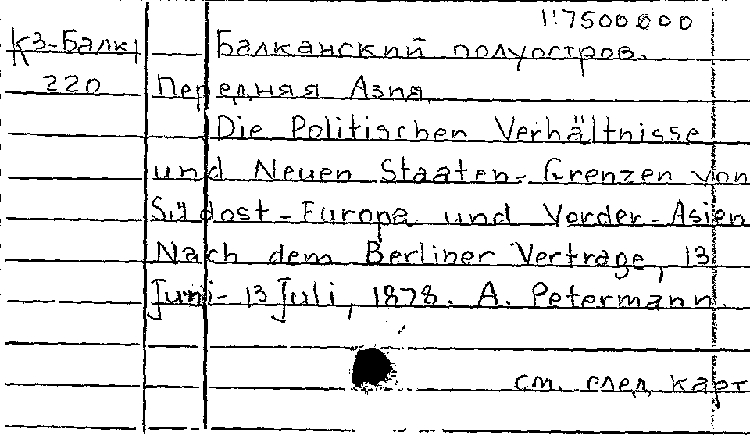 1:7500000
К3-Балк Балканский полуостров.
220 Передняя Азия
Die Politischen Verhältnisse
und Neuen Staaten-Grenzen von
Südost-Europa und Vorder-Asien
Nach dem Berliner Vertrage, 13
Juni-13 Juli, 1878. A. Petermann.
см. след. карт